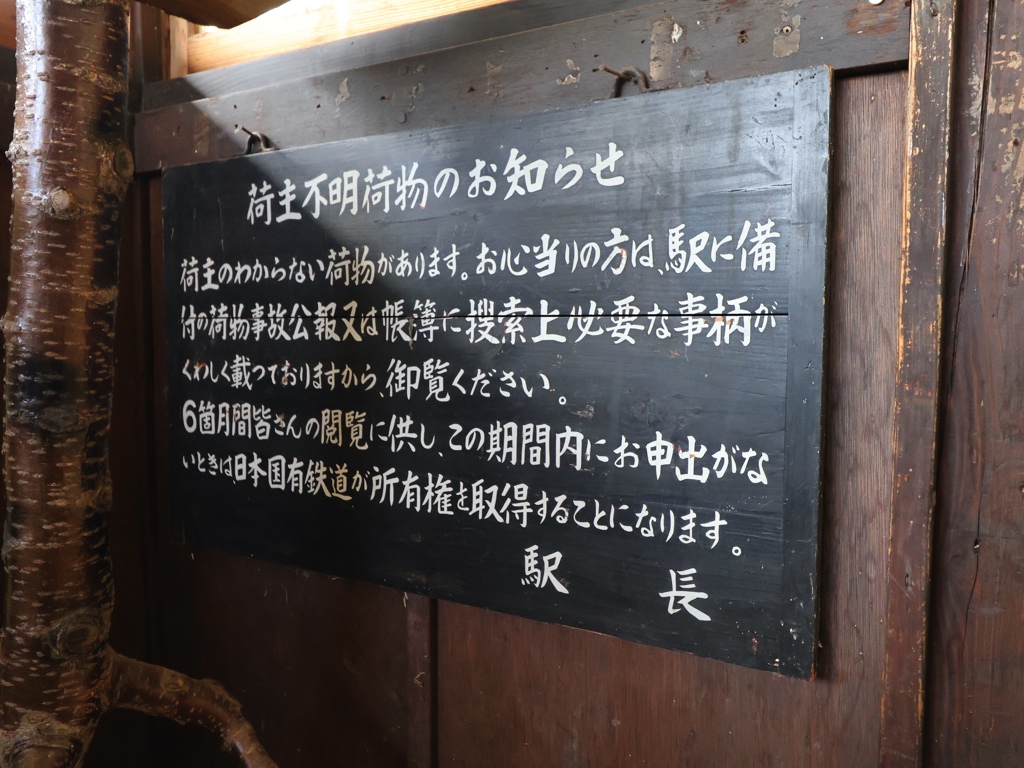 荷主不明荷物のお知らせ
荷主のわからない荷物があります。お心当りの方は、駅に備
付の荷物事故公報又は帳簿に搜索上必要な事柄が
くわしく載つておりますから、御覧ください。
6箇月間皆さんの閲覧に供し、この期間内にお申出がな
いときは、日本国有鉄道が所有権を取得することになります。
駅 長